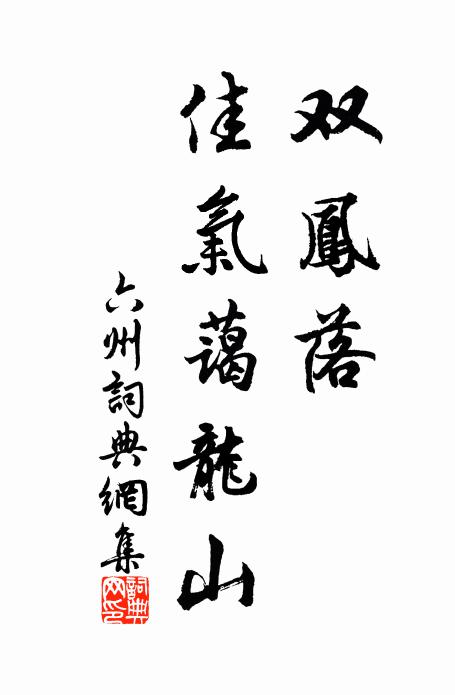 双鳳落
佳氣藹龍山
六州詞典網集
詞典网印